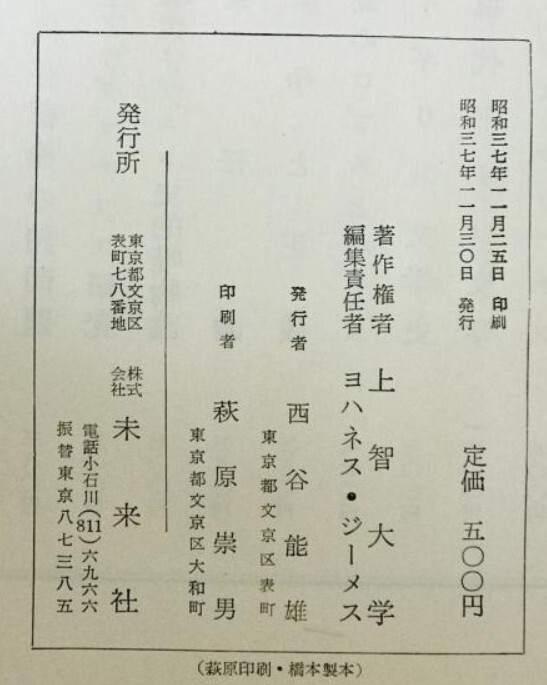 昭和三七年一一月二五日 印刷
昭和三七年一一月三〇日 発行
定価 五〇〇円
著作権者 上智大学
編集責任者 ヨハネス・ジーメス
発行者 西谷能雄
東京都文京区表町
印刷者 萩原崇男
東京都文京区大和町
発行所
東京都文京区
表町七八番地
株式
会社
未来社
電話小石川(811)六九六六
振替東京八七三八五
(萩原印刷・橋本製本)